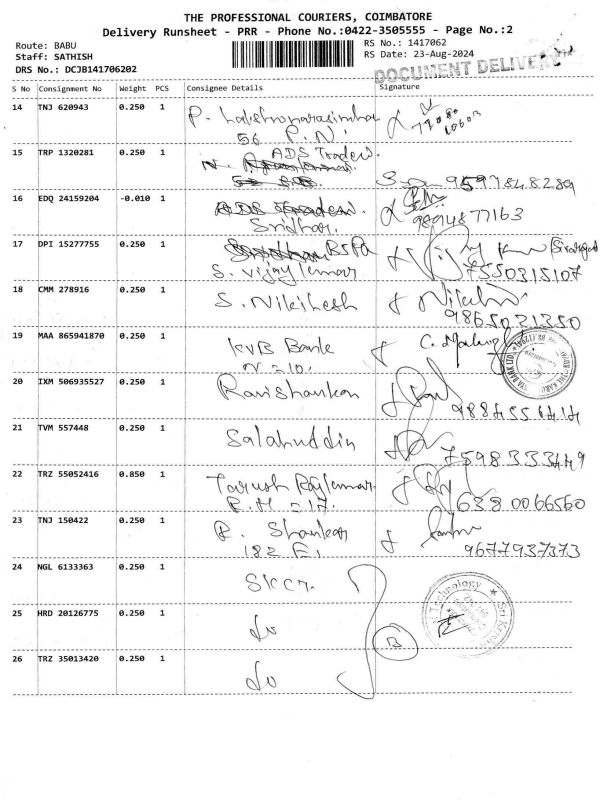 THE PROFESSIONAL COURIERS, COIMBATORE
Delivery Runsheet - PRR - Phone No.:0422-3505555 - Page No.:2
Route: BABU
RS No.: 1417062
Staff: SATHISH
RS Date: 23-Aug-2024
DRS No.: DCJB141706202
DOCUMENT DELIVERY
S No Consignment No Weight PCS Consignee Details Signature
14 TNJ 620943 0.250 1
56 P.N.
15 TRP 1320281 0.250 1 ADS Traders.
16 EDQ 24159204 -0.010 1 ADS Traders.
Sridhar. 9894877163
17 DPI 15277755 0.250 1
S. Vijaykumar 7550315107
18 CMM 278916 0.250 1 S. Nikilesh
9865031350
19 MAA 865941870 0.250 1 KVB Bank
N 210.
20 IXM 506935527 0.250 1 Ravishankar
21 TVM 557448 0.250 1 Salahuddin
7598333449
22 TRZ 55052416 0.850 1 Tarush Rajkumar.
R.M 217. 638 0066560
23 TNJ 150422 0.250 1 R. Shankar
182 E1 9677937373
24 NGL 6133363 0.250 1 SKCT.
Technology * Sri Krishna
25 HRD 20126775 0.250 1 Do
B
26 TRZ 35013420 0.250 1 Do